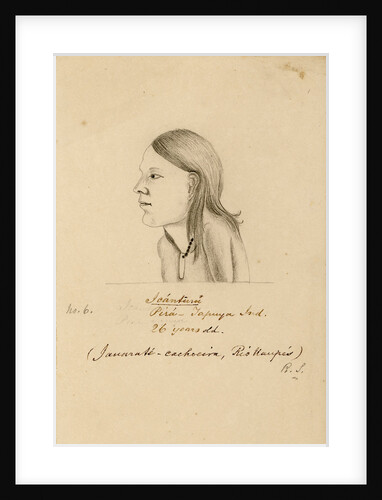 No. 6.
Joánturú
Pirá-Tapuya Ind.
26 years old.
(Jauaraté-cachoeira, Rio Uaupés)
R. S.